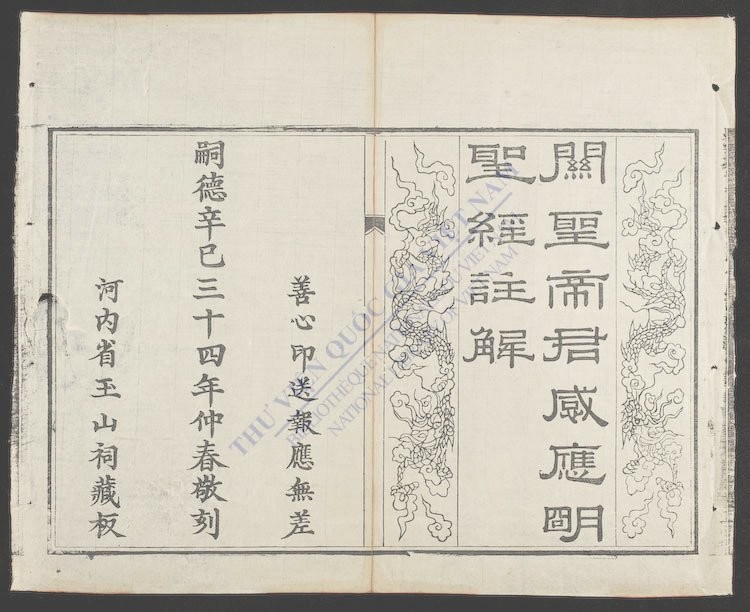 關聖帝君感應明
聖經註解
善心印送報應無差
嗣德辛巳三十四年仲春敬刻
河内省玉山祠藏板
THƯ VIỆN QUỐC GIA VIỆT NAM
BIBLIOTHÈQUE NATIONALE DU VIETNAM
NATIONAL LIBRARY OF VIETNAM